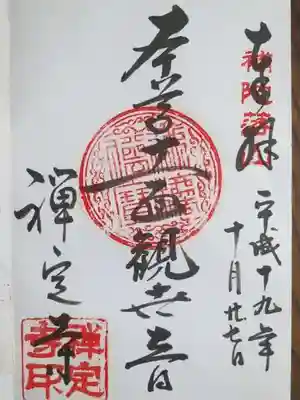 奉拝
補陀落山
平成十九年
十月廿七日
本尊十一面観世音
禅定寺
禅定
寺印